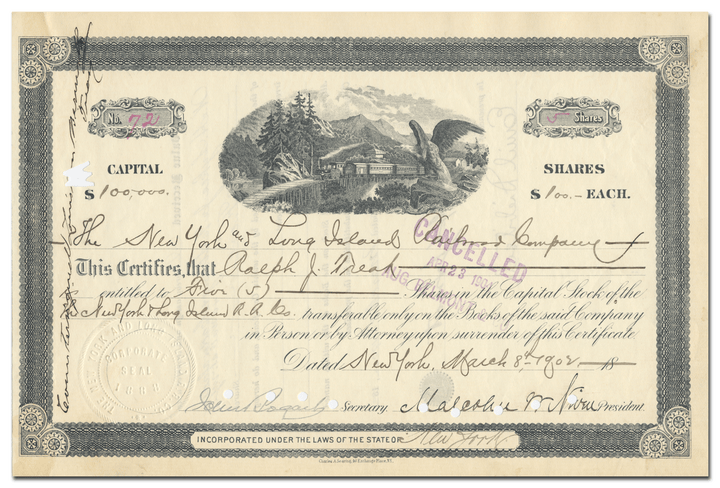 No. 72
5 Shares
CAPITAL
$ 100,000.
SHARES
$ 100.- EACH.
The New York and Long Island Railroad Company
This Certifies, that Ralph J. Treat
is entitled to Five (5) Shares in the Capital Stock of the
New York & Long Island R.R. Co. transferable only on the Books of the said Company
in Person or by Attorney upon surrender of this Certificate.
Dated New York, March 8th 1902 18
CANCELLED
APR 23
CORPORATE
SEAL
Secretary. Malcolm W. Niven President.
INCORPORATED UNDER THE LAWS OF THE STATE OF New York